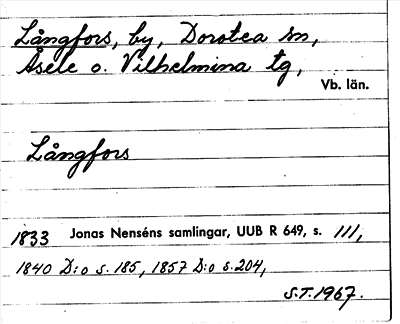 Långfors, by, Dorotea sn,
Åsele o. Vilhelmina tg,
Vb. län.
Långfors
1833 Jonas Nenséns samlingar, UUB R 649, s. 111,
1840 D:o s. 185, 1857 D:o s. 204,
S.T. 1967.